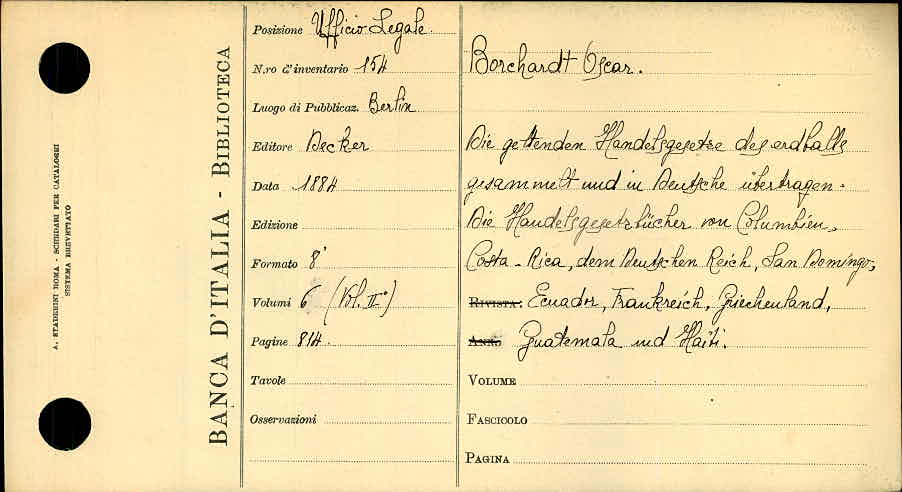 A. STADERINI ROMA - SCHEDARI PER CATALOGHI
SISTEMA BREVETTATO
BANCA D'ITALIA - BIBLIOTECA
Posizione Ufficio Legale.
N.ro d'inventario 154
Luogo di Pubblicaz. Berlin
Editore Decker
Data 1884
Edizione
Formato 8°
Volumi 6 (Vol. II°)
Pagine 814.
Tavole
Osservazioni
Borchardt Oscar.
Die geltenden Handelsgesetze des erdballs
gesammelt und in Deutsche übertragen.
Die Handelsgesetzbücher von Columbien,
Costa-Rica, dem Deutschen Reich, San Domingo,
RIVISTA: Ecuador, Frankreich, Griechenland,
ANNO Guatemala und Haiti.
VOLUME
FASCICOLO
PAGINA